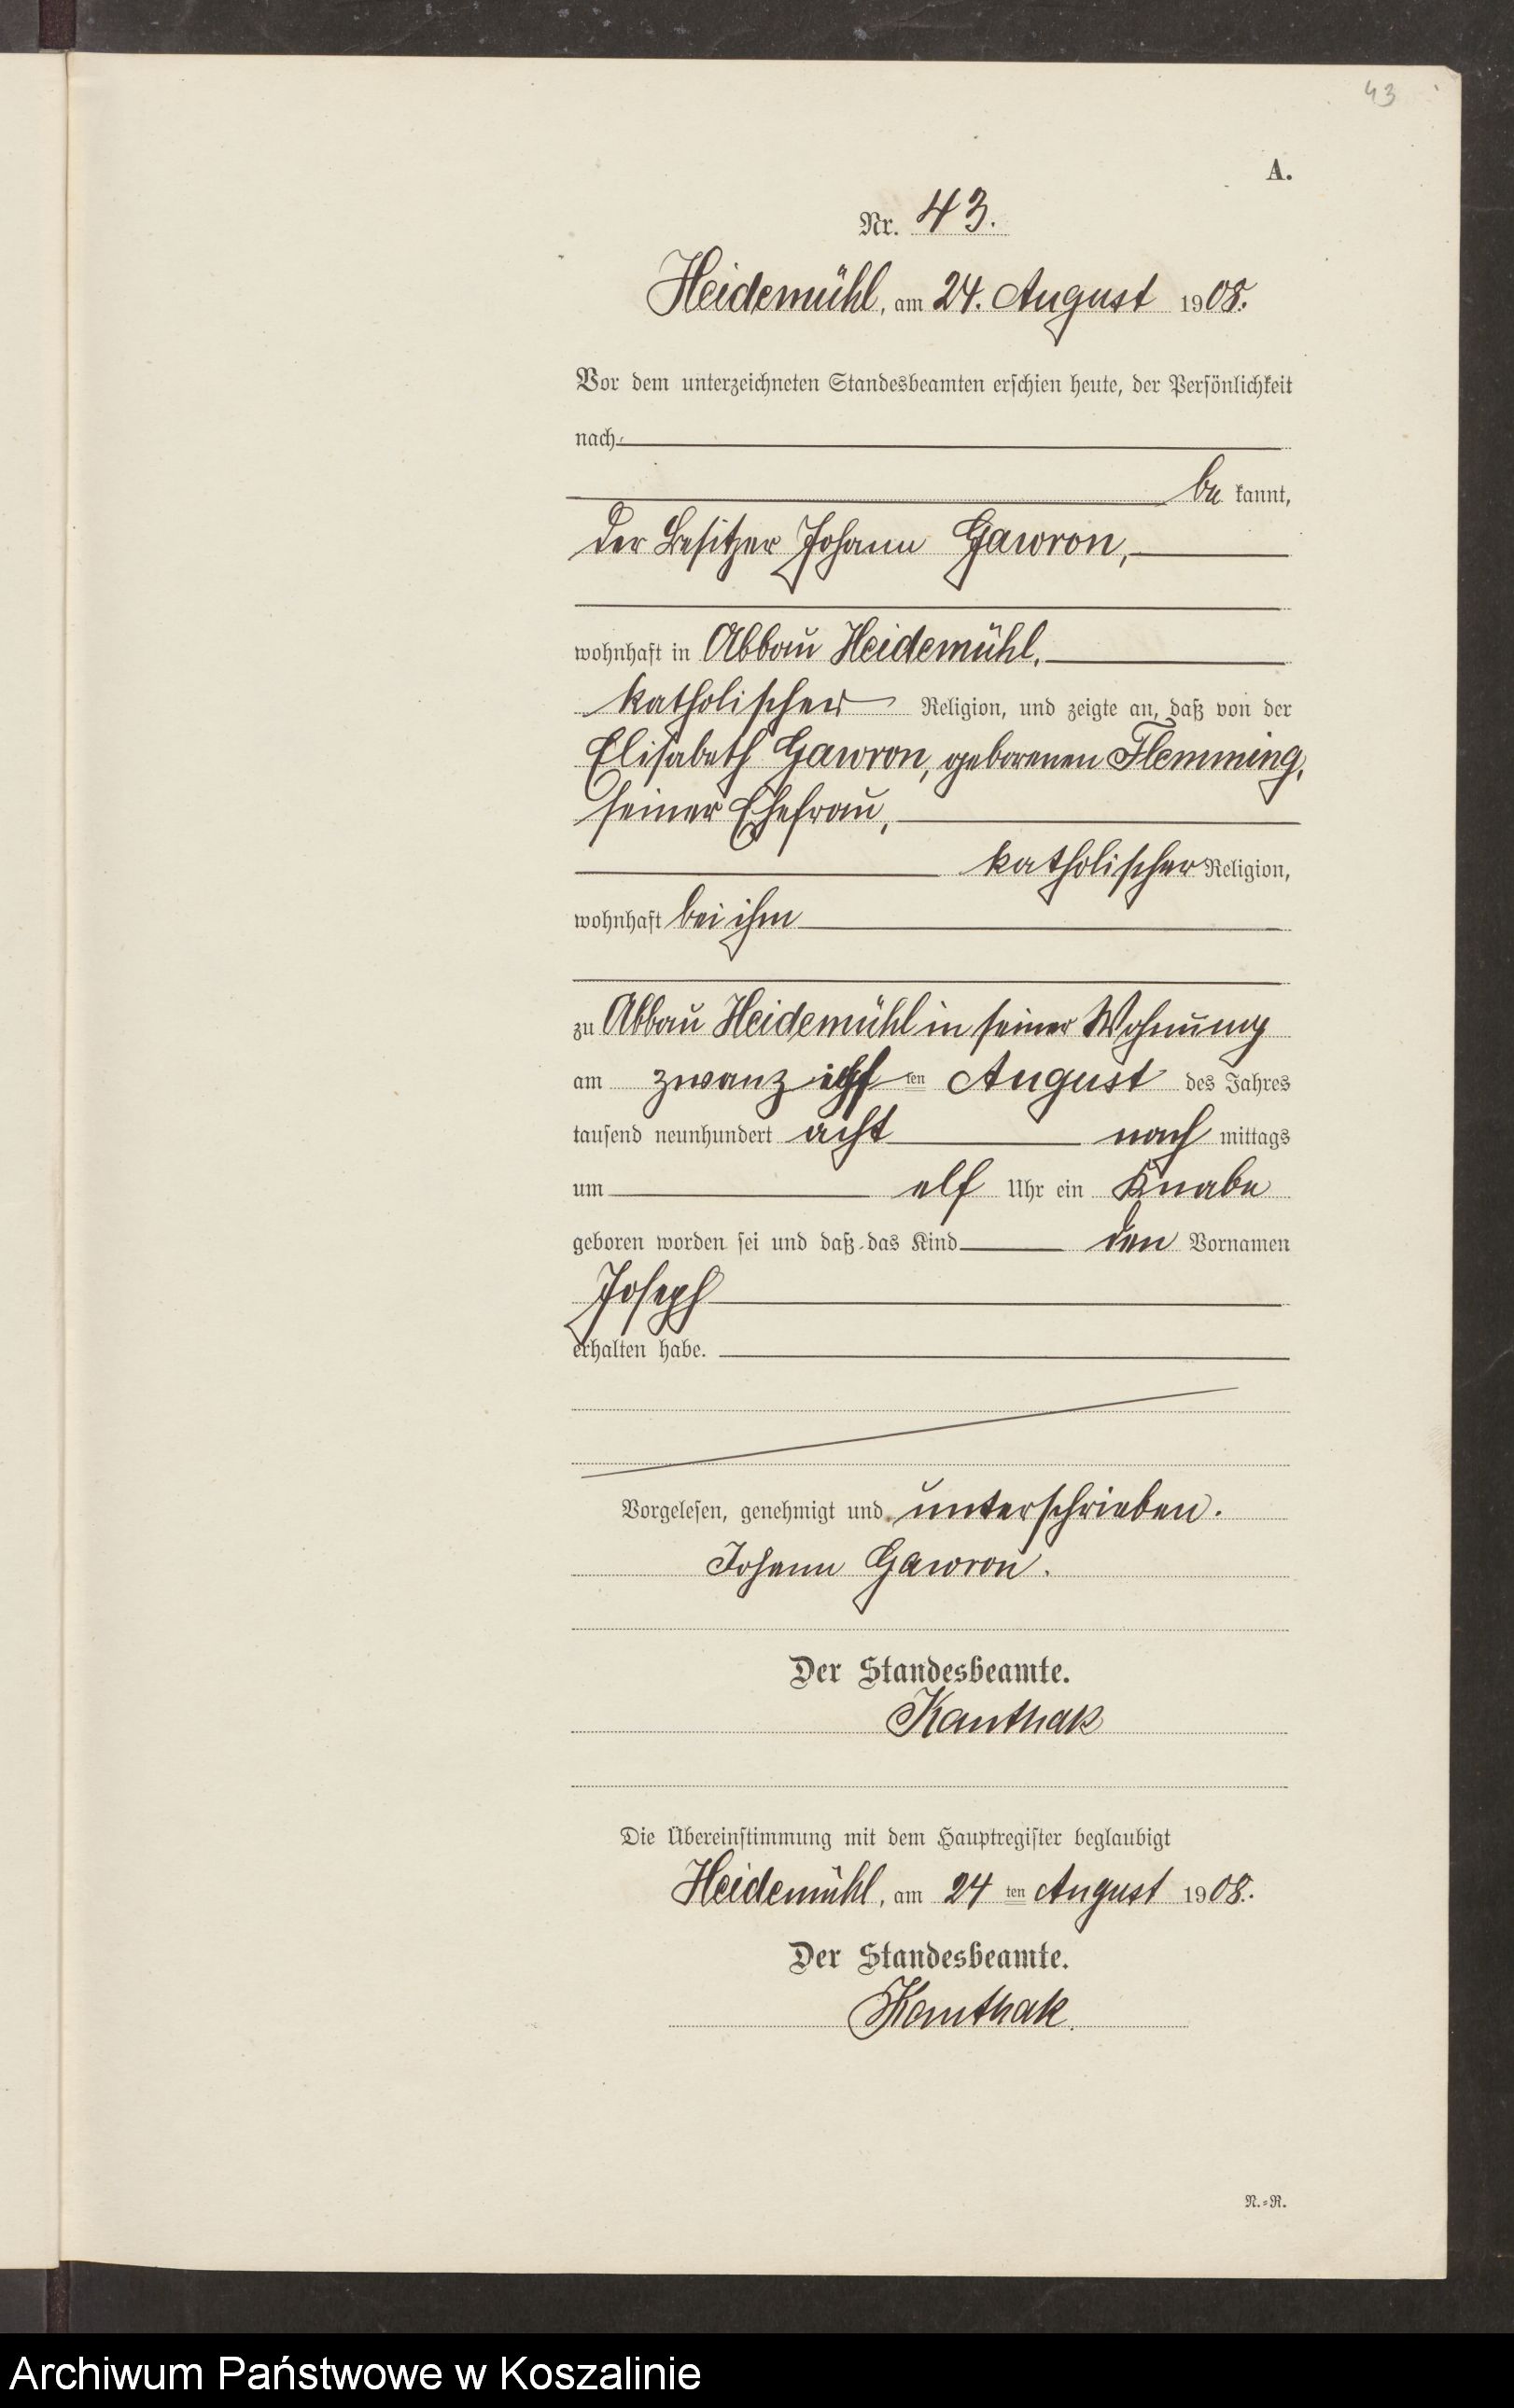 43
A.
Nr. 43.
Heidemühl, am 24. August 1908.
Vor dem unterzeichneten Standesbeamten erschien heute, der Persönlichkeit
nach
be kannt,
der Besitzer Johann Gawron,
wohnhaft in Abbau Heidemühl,
katholischer Religion, und zeigte an, daß von der
Elisabeth Gawron, geborenen Flemming,
seiner Ehefrau,
katholischer Religion,
wohnhaft bei ihm
zu Abbau Heidemühl in seiner Wohnung
am zwanzigsten August des Jahres
tausend neunhundert acht nach mittags
um elf Uhr ein Knabe
geboren worden sei und daß das Kind den Vornamen
Joseph
erhalten habe.
Vorgelesen, genehmigt und unterschrieben.
Johann Gawron.
Der Standesbeamte.
Kanthak
Die Übereinstimmung mit dem Hauptregister beglaubigt
Heidemühl, am 24 ten August 1908.
Der Standesbeamte.
Kanthak.
N.=R.
Archiwum Państwowe w Koszalinie